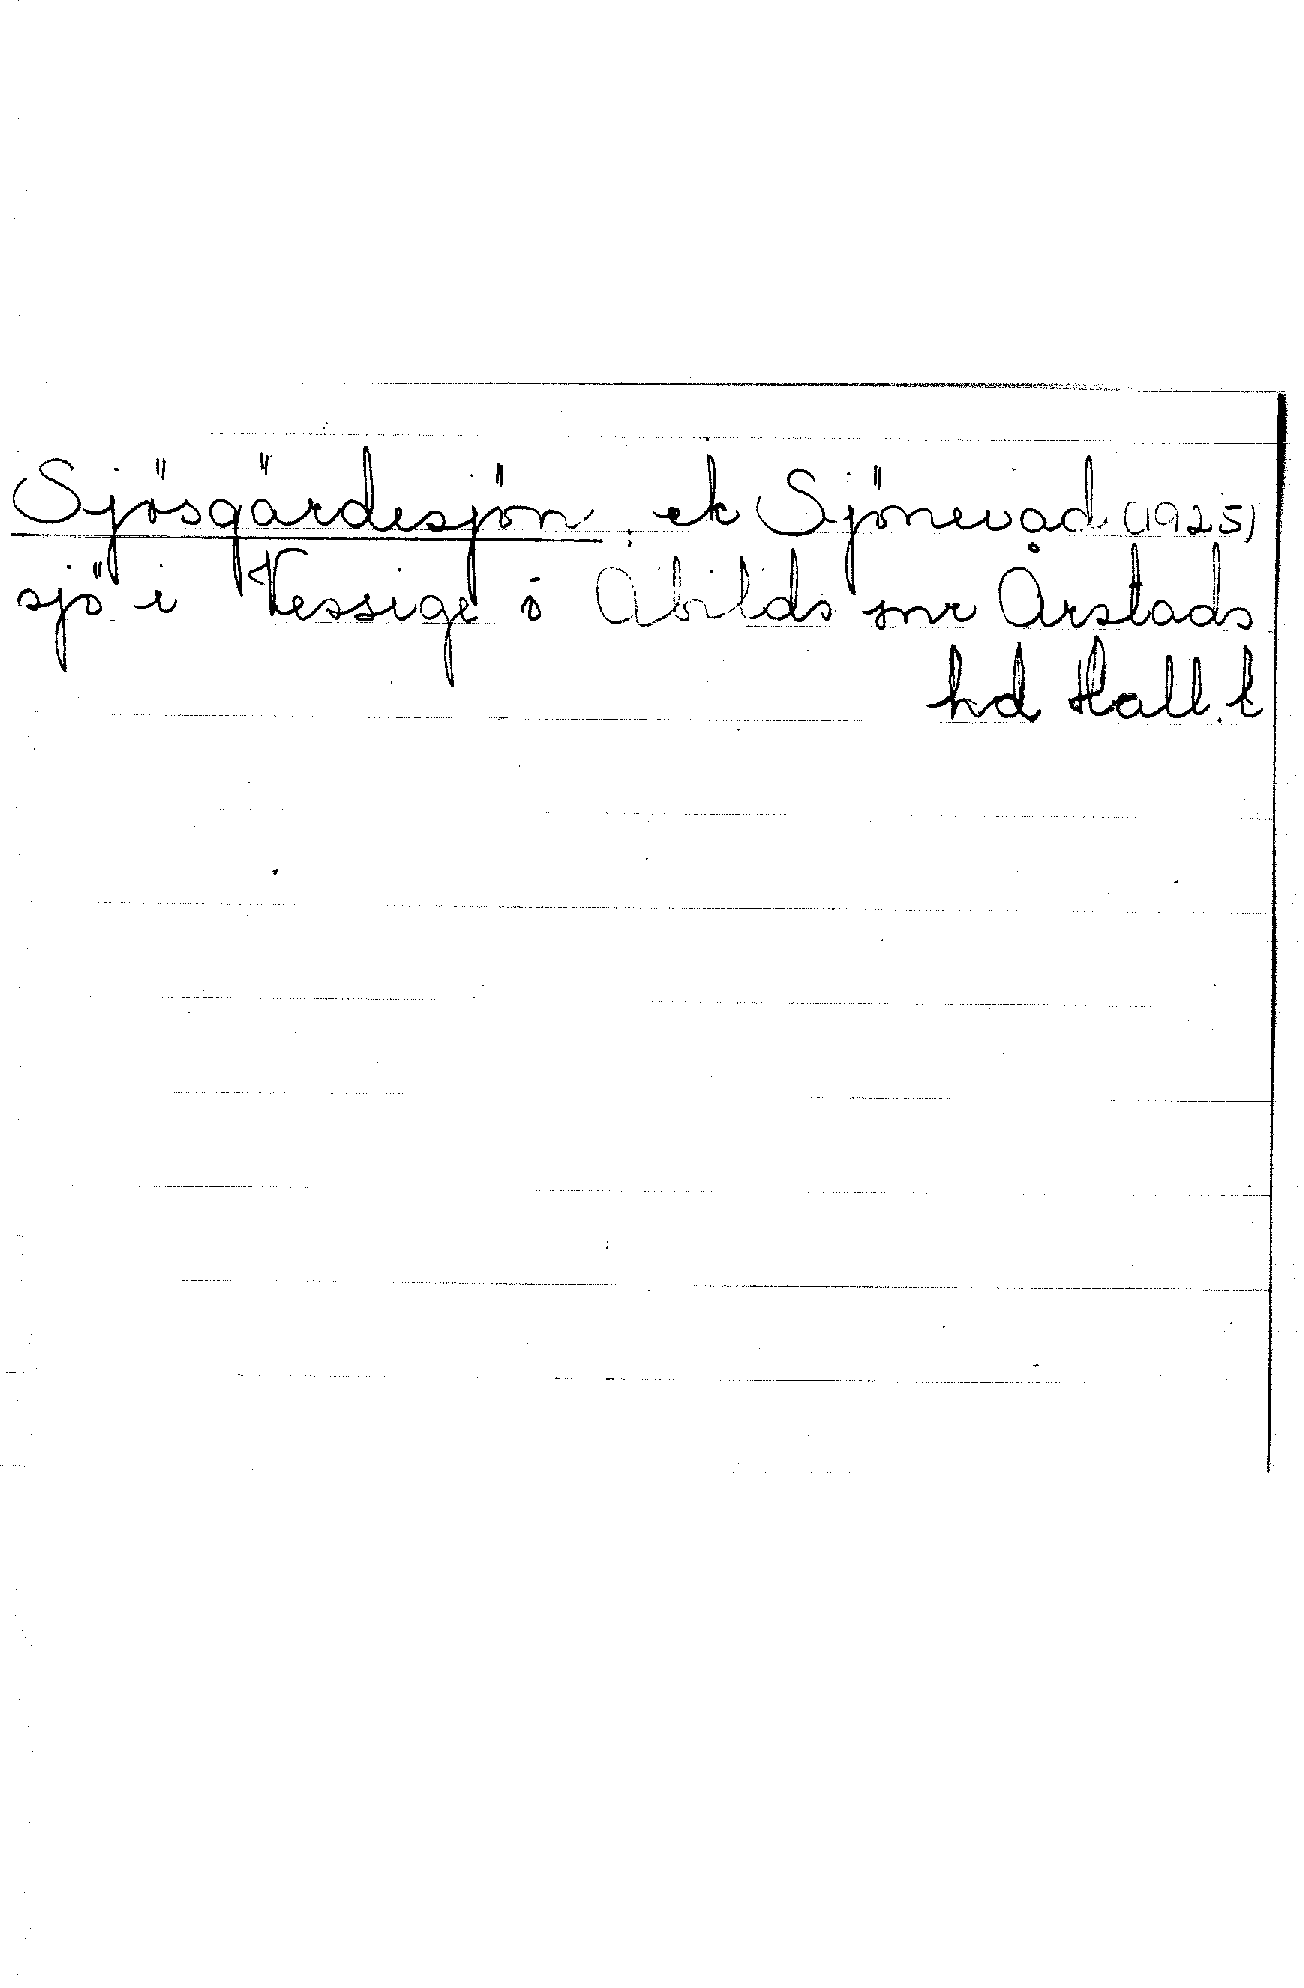 Sjösgärdesjön, ek Sjönevad (1925)
sjö i Vessige o Abilds snr Årstads
hd Hall. l